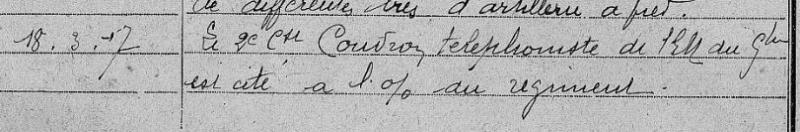 de différentes bies d'artillerie à pied.
18.3.17 Le 2e Cst Coudron, téléphoniste de l'EM du Gbn
est cité à l'o/o du régiment.